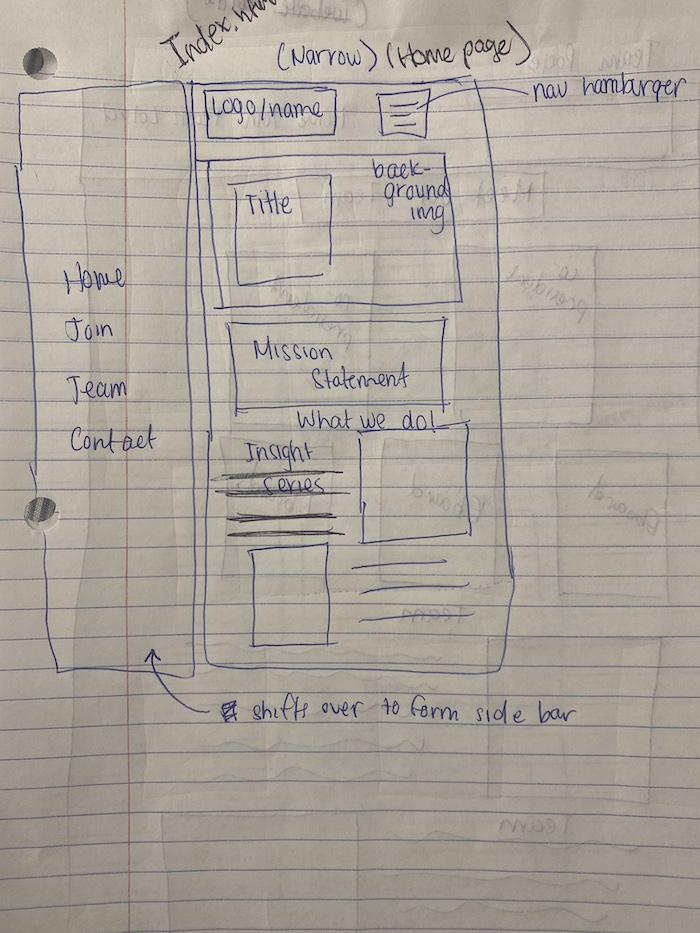 Index.html
(Narrow) (Home page)
Logo/name
nav hamburger
back-
ground
img
Title
Home
Join
Team
Contact
Mission
Statement
What we do!
Insight
series
shifts over to form side bar
Team
Team